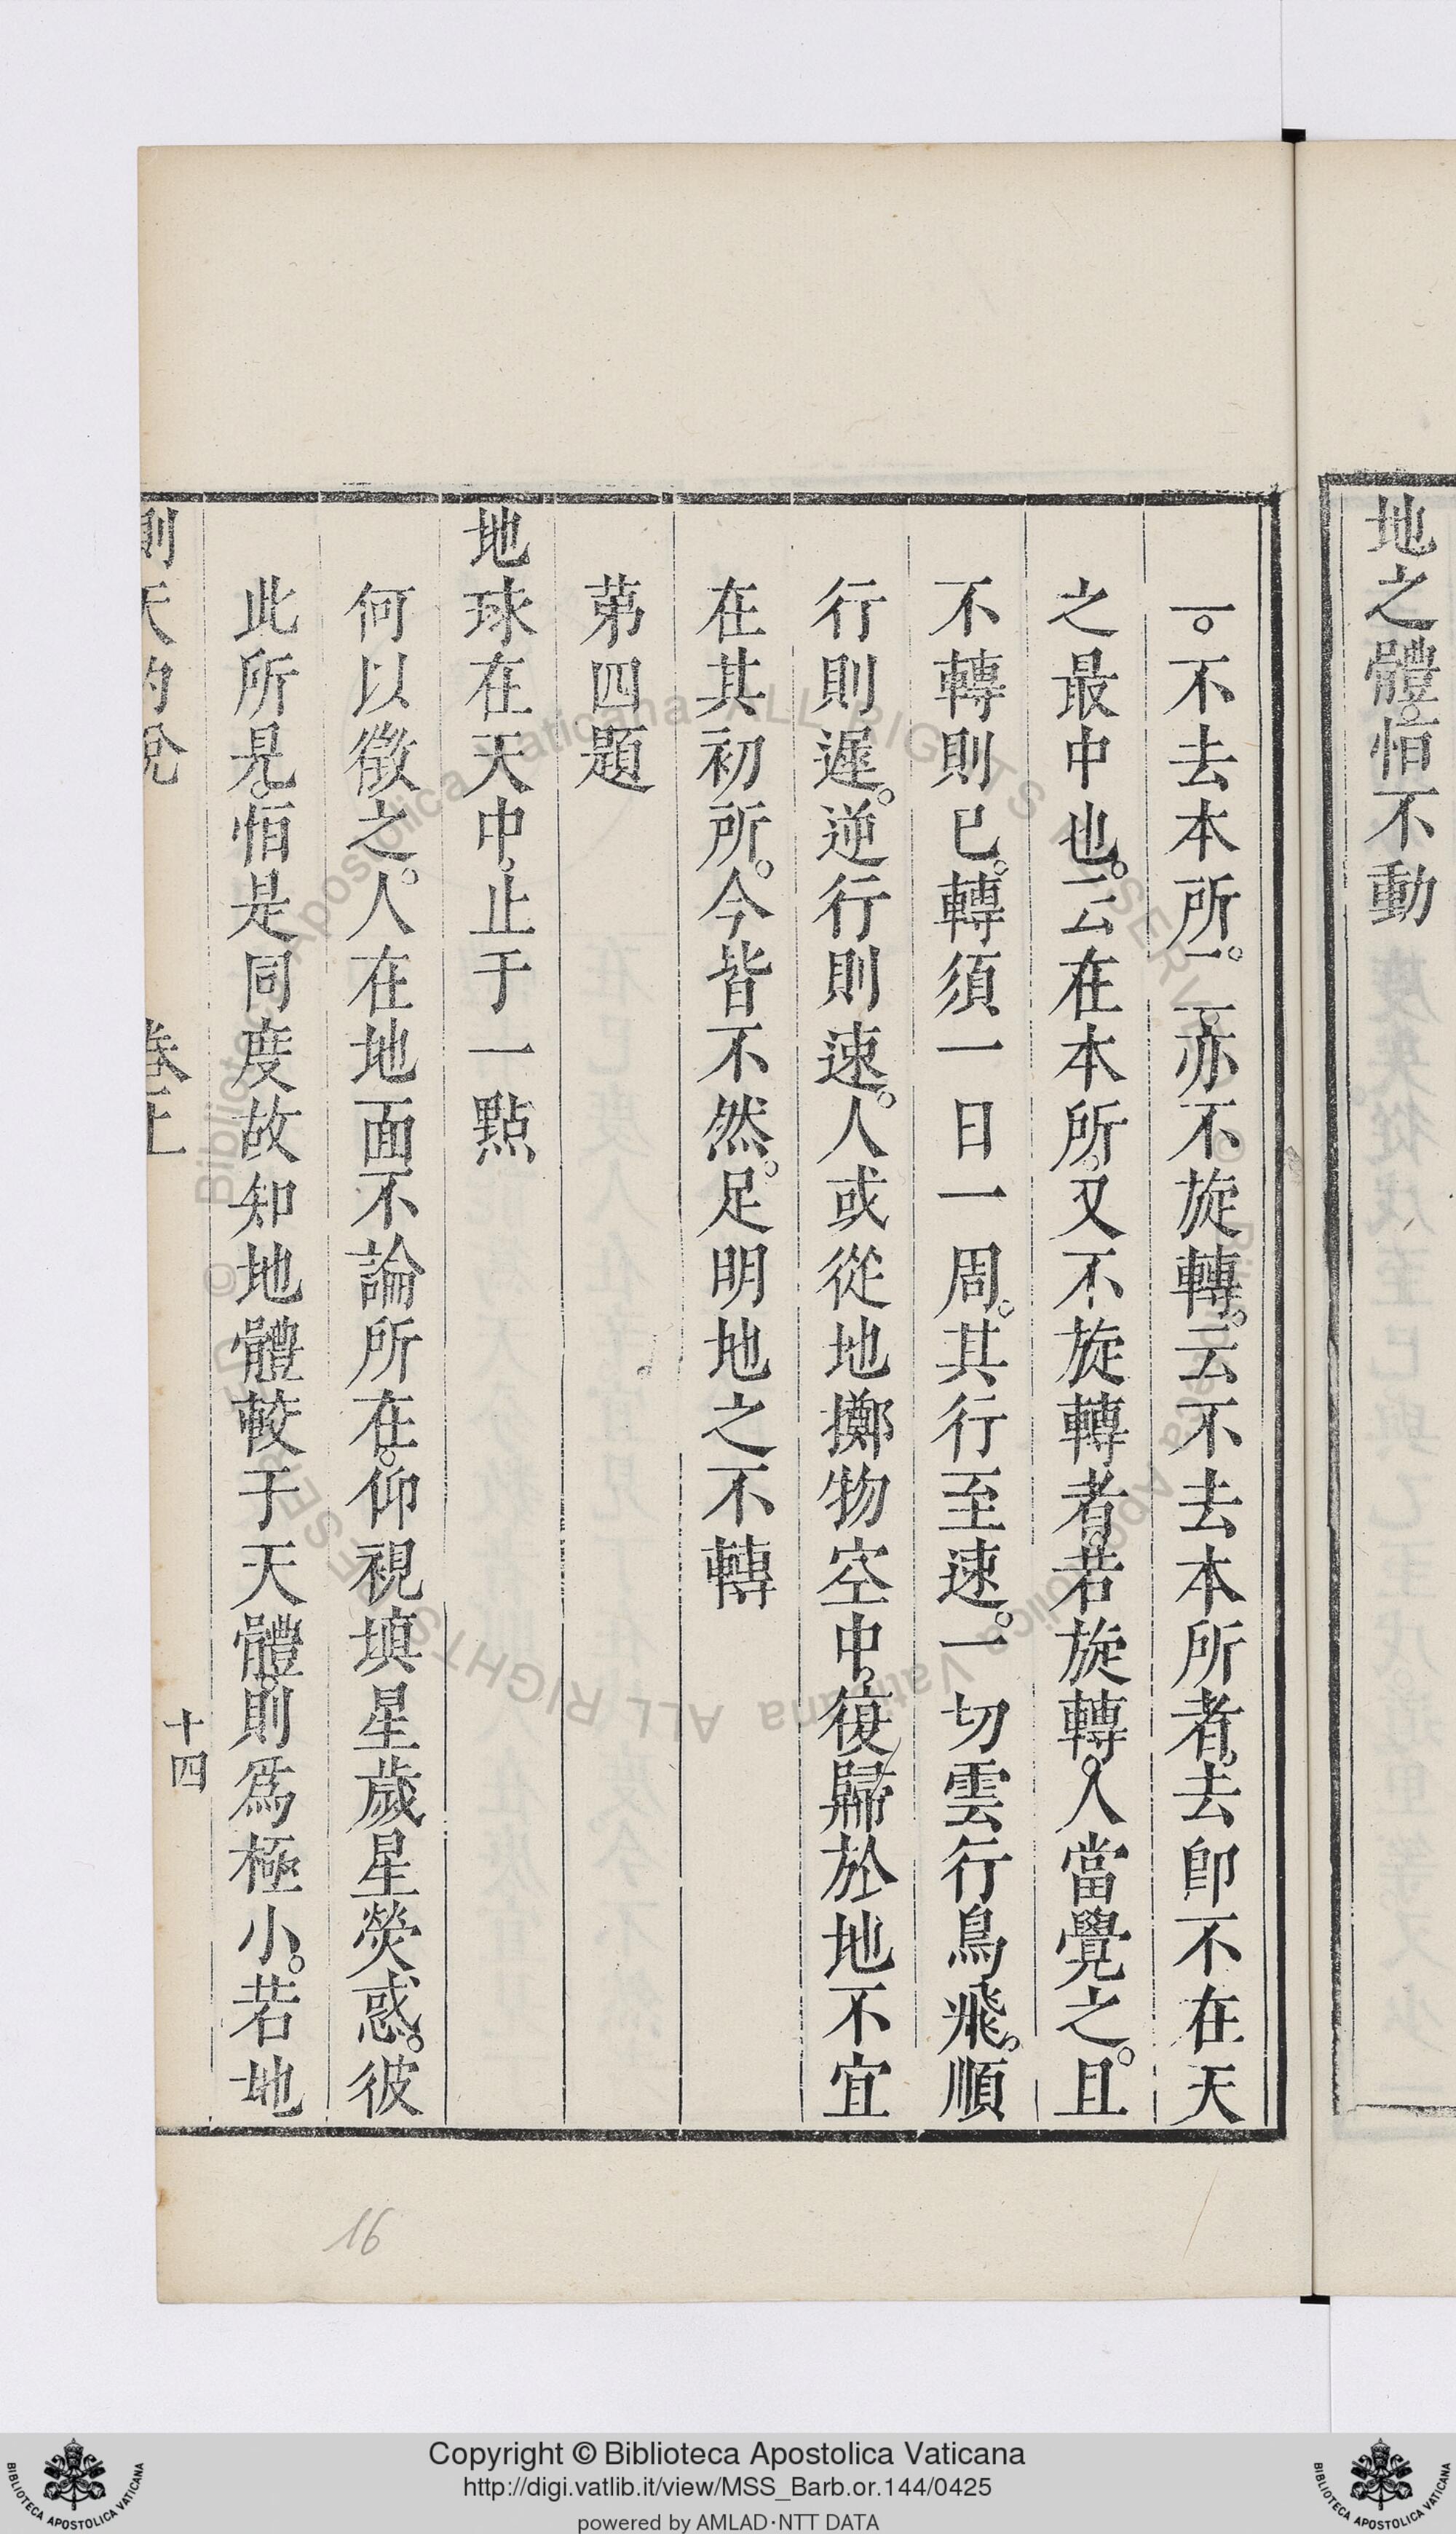 地之體恒不動
一。不去本所。一亦不旋轉。云不去本所者。去卽不在天
之最中也。云在本所。又不旋轉者。若旋轉。人當覺之。且
不轉則已。轉須一日一周。其行至速。一切雲行鳥飛。順
行則遲。逆行則速。人或從地擲物空中。復歸於地不宜
在其初所。今皆不然。足明地之不轉
苐四題
地球在天中。止于一點
何以徵之。人在地面不論所在。仰視填星歲星熒惑。彼
此所見。恒是同度故知地體較于天體。則爲極小。若地
則天約說
卷上
十四
16
Copyright © Biblioteca Apostolica Vaticana
http://digi.vatlib.it/view/MSS_Barb.or.144/0425
powered by AMLAD·NTT DATA
BIBLIOTECA APOSTOLICA VATICANA
BIBLIOTECA APOSTOLICA VATICANA